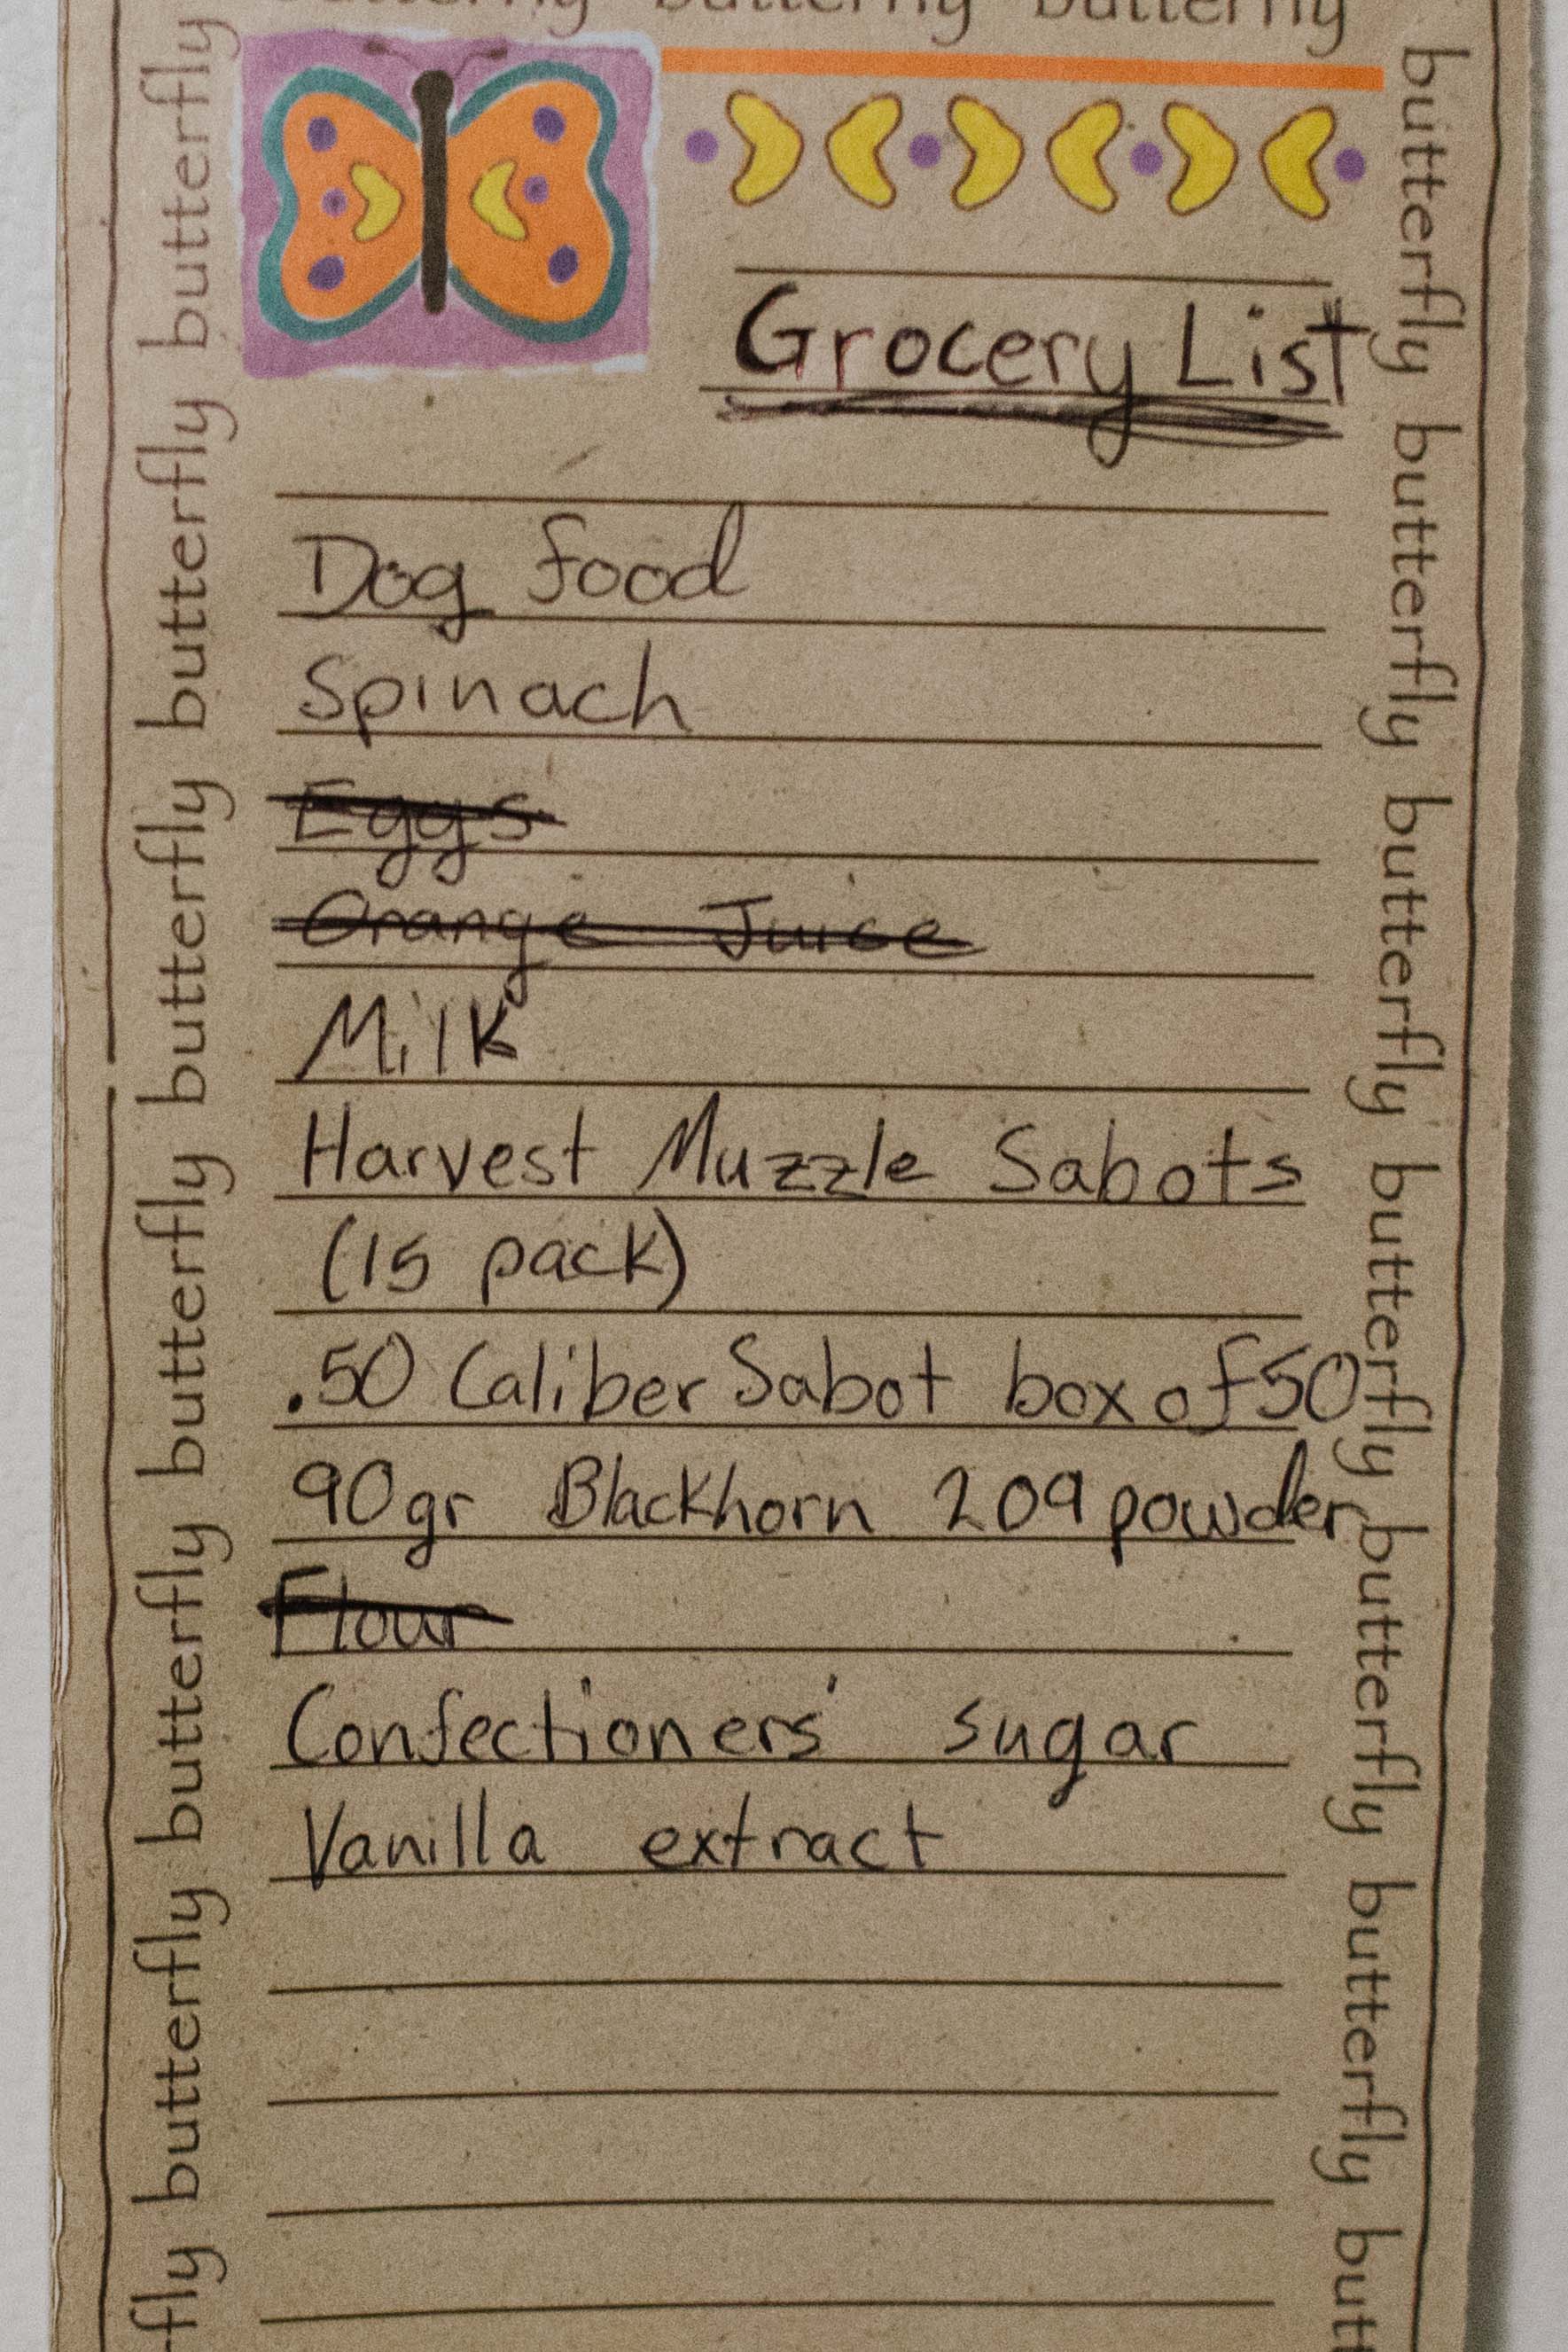 butterfly butterfly butterfly
Grocery List
Dog food
Spinach
Eggs
Orange Juice
Milk
Harvest Muzzle Sabots
(15 pack)
.50 Caliber Sabot box of 50
90gr Blackhorn 209 powder
Flour
Confectioners' sugar
Vanilla extract
fly butterfly butterfly butterfly butterfly butterfly butterfly
butterfly butterfly butterfly butterfly butterfly butterfly butt